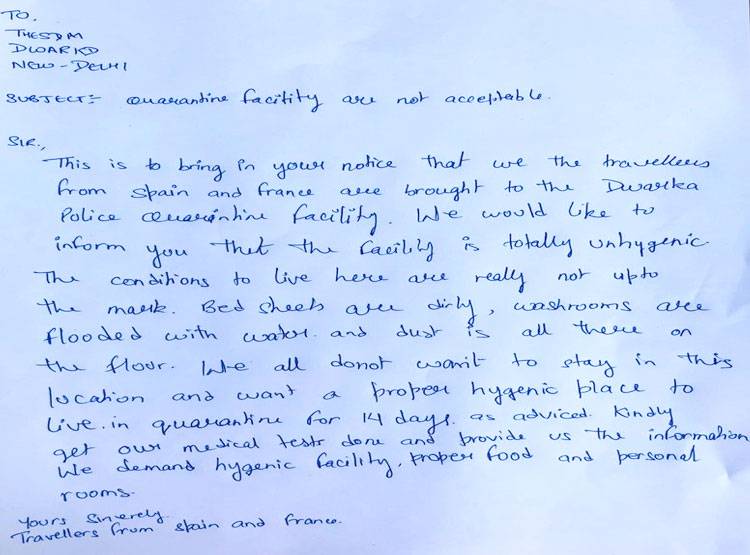 TO,
THESDM
DWARKA
NEW-DELHI
SUBJECT:- Quarantine facitity are not acceptable.
SIR.,
This is to bring in your notice that we the travellers
from spain and france are brought to the Dwarka
Police Quarintine facility. We would like to
inform you that the facility is totally unhygenic.
The conditions to live here are really not upto
the mark. Bed sheets are dirty, washrooms are
flooded with water. and dust is all there on
the floor. We all donot want to stay in this
location and want a proper hygenic place to
live.in quarantine for 14 days. as adviced. Kindly
get our medical tests done and provide us the information
We demand hygenic facility, proper food and personal
rooms.
Yours Sinverely.
Travellers from spain and france.